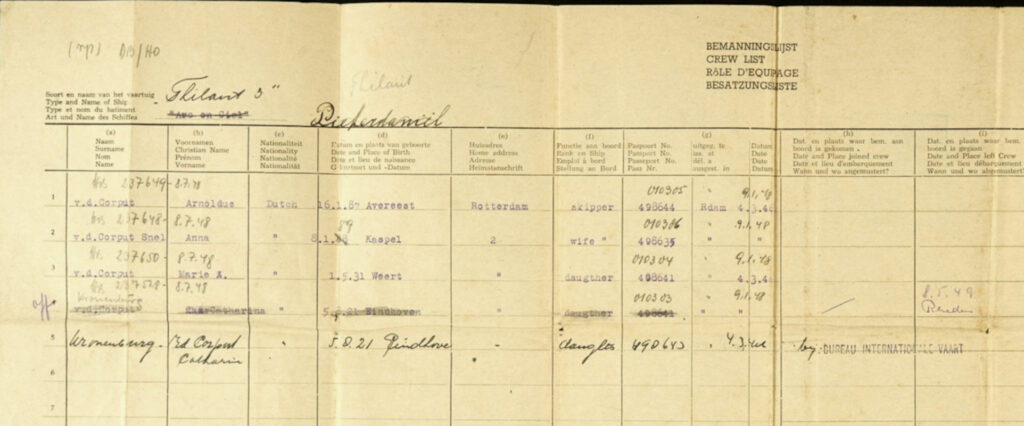 (rp) DB/HO
BEMANNINGSLIJST
CREW LIST
RÔLE D'EQUIPAGE
BESATZUNGSLISTE
Thilant
Soort en naam van het vaartuig
Type and Name of Ship
Type et nom du batiment
Art und Name des Schiffes
"Thilant 3"
"Arc en Ciel"
Pieterdaniël
(a) (b) (c) (d) (e) (f) (g) (h) (i)
Naam Voornamen Nationaliteit Datum en plaats van geboorte Huisadres Functie aan boord Paspoort No. uitgeg. te Datum Dat. en plaats waar bem. aan Dat. en plaats waar bem. van
Surname Christian Name Nationality Date and Place of Birth Home address Rank on Ship Passport No. iss. at Date boord is gekomen. boord is gegaan
Nom Prénom Nationalité Date et lieu de naissance Adresse Emploi à bord Passeport No. dél. à Date Date and Place joined crew Date and Place left Crew
Name Vorname Nationalität Geburtsort und -Datum Heimatanschrift Stellung an Bord Pass Nr. ausgest. in Datum Date et lieu d'embarquement Date et lieu débarquement
Wann und wo angemustert? Wann und wo abgemustert?
237649 - 8.7.48 010305 9.1.48
1 v.d.Corput Arnoldus Dutch 16.1.87 Avereest Rotterdam skipper 498644 " Rdam 4.3.46
237648 - 8.7.48 89 010306 9.1.48
2 v.d.Corput Snel Anna " 8.1. Kaspel 2 wife " 498635 " " "
237650 - 8.7.48 010304 9.1.48
3 v.d.Corput Marie A. " 1.5.31 Weert " daugther 498641 " " 4.3.46
237528 - 8.7.48 010303 9.1.48 8.5.49
Kronenburg
off v.d.Corput Catharina " 5.8.21 Eindhoven daugther 498641 " " " Rheden
5 Kronenburg - vd Corput " 5.8.21 Eindhove - daugter 490643 " 4.3.46 bij BUREAU INTERNATIONALE VAART
Catharin
6
7